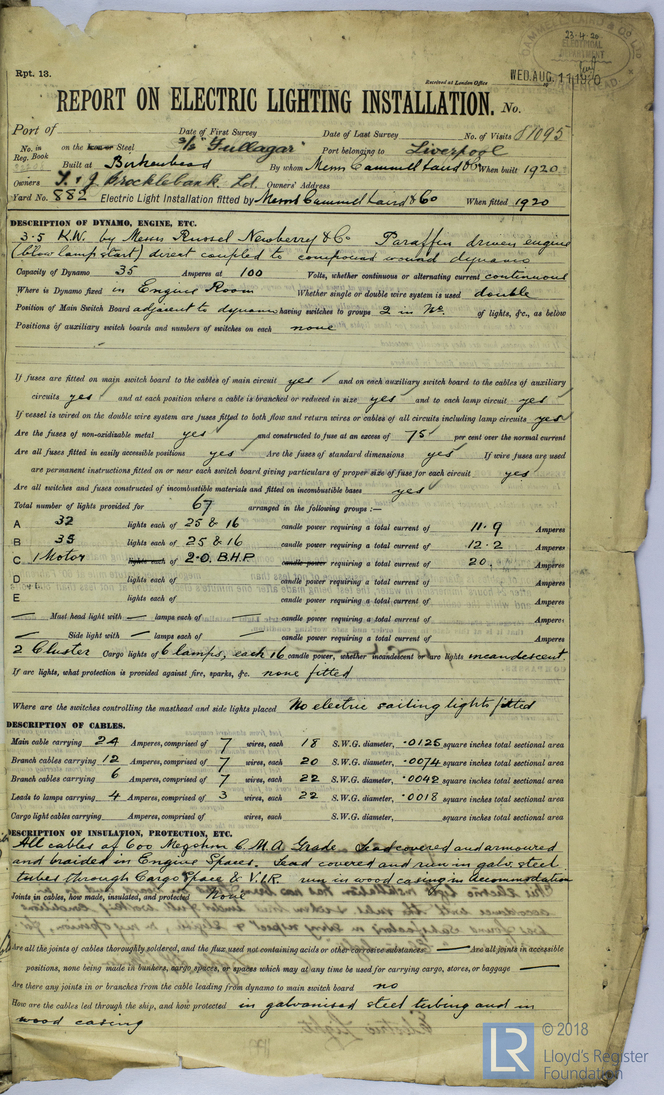 CAMMELL LAIRD & CO LTD
23·4·20
ELECTRICAL
DEPARTMENT
Rpt. 13.
Received at London Office
WED. AUG. 11 1920
REPORT ON ELECTRIC LIGHTING INSTALLATION. No.
Port of Date of First Survey Date of Last Survey No. of Visits 81095
No. in Reg. Book on the Iron or Steel S/S "Fullagar" Port belonging to Liverpool
Built at Birkenhead By whom Messrs Cammell Laird & Co When built 1920
Owners T. & J. Brocklebank. Ld. Owners' Address
Yard No. 882 Electric Light Installation fitted by Messrs Cammell Laird & Co When fitted 1920
DESCRIPTION OF DYNAMO, ENGINE, ETC.
3.5 K.W. by Messrs Russel Newberry & Co Paraffin driven engine
(blow lamp start) direct coupled to compound wound dynamo
Capacity of Dynamo 35 Amperes at 100 Volts, whether continuous or alternating current continuous
Where is Dynamo fixed in Engine Room Whether single or double wire system is used double
Position of Main Switch Board adjacent to dynamo having switches to groups 2 in No. of lights, &c., as below
Positions of auxiliary switch boards and numbers of switches on each none
If fuses are fitted on main switch board to the cables of main circuit yes and on each auxiliary switch board to the cables of auxiliary
circuits yes and at each position where a cable is branched or reduced in size yes and to each lamp circuit yes
If vessel is wired on the double wire system are fuses fitted to both flow and return wires or cables of all circuits including lamp circuits yes
Are the fuses of non-oxidizable metal yes and constructed to fuse at an excess of 75 per cent over the normal current
Are all fuses fitted in easily accessible positions yes Are the fuses of standard dimensions yes If wire fuses are used
are permanent instructions fitted on or near each switch board giving particulars of proper size of fuse for each circuit yes
Are all switches and fuses constructed of incombustible materials and fitted on incombustible bases yes
Total number of lights provided for 67 arranged in the following groups :—
A 32 lights each of 25 & 16 candle power requiring a total current of 11.9 Amperes
B 35 lights each of 25 & 16 candle power requiring a total current of 12.2 Amperes
C 1 Motor lights each of 2.0. B.H.P. candle power requiring a total current of 20. Amperes
D lights each of candle power requiring a total current of Amperes
E lights each of candle power requiring a total current of Amperes
— Mast head light with — lamps each of — candle power requiring a total current of Amperes
— Side light with — lamps each of — candle power requiring a total current of Amperes
2 Cluster Cargo lights of 6 lamps, each 16 candle power, whether incandescent or arc lights incandescent.
If arc lights, what protection is provided against fire, sparks, &c. none fitted
Where are the switches controlling the masthead and side lights placed No electric sailing lights fitted
DESCRIPTION OF CABLES.
Main cable carrying 24 Amperes, comprised of 7 wires, each 18 S.W.G. diameter, .0125 square inches total sectional area
Branch cables carrying 12 Amperes, comprised of 7 wires, each 20 S.W.G. diameter, .0074 square inches total sectional area
Branch cables carrying 6 Amperes, comprised of 7 wires, each 22 S.W.G. diameter, .0042 square inches total sectional area
Leads to lamps carrying 4 Amperes, comprised of 3 wires, each 22 S.W.G. diameter, .0018 square inches total sectional area
Cargo light cables carrying Amperes, comprised of wires, each S.W.G. diameter, square inches total sectional area
DESCRIPTION OF INSULATION, PROTECTION, ETC.
All cables of 600 Megohm C.M.A. Grade. Lead covered and armoured
and braided in Engine Spaces. Lead covered and run in galv. steel
tubes through Cargo Space & V.I.R. run in wood casing in accommodation
Joints in cables, how made, insulated, and protected None
Are all the joints of cables thoroughly soldered, and the flux used not containing acids or other corrosive substances — Are all joints in accessible
positions, none being made in bunkers, cargo spaces, or spaces which may at any time be used for carrying cargo, stores, or baggage —
Are there any joints in or branches from the cable leading from dynamo to main switch board no
How are the cables led through the ship, and how protected in galvanised steel tubing and in
wood casing
LR © 2018
Lloyd's Register
Foundation